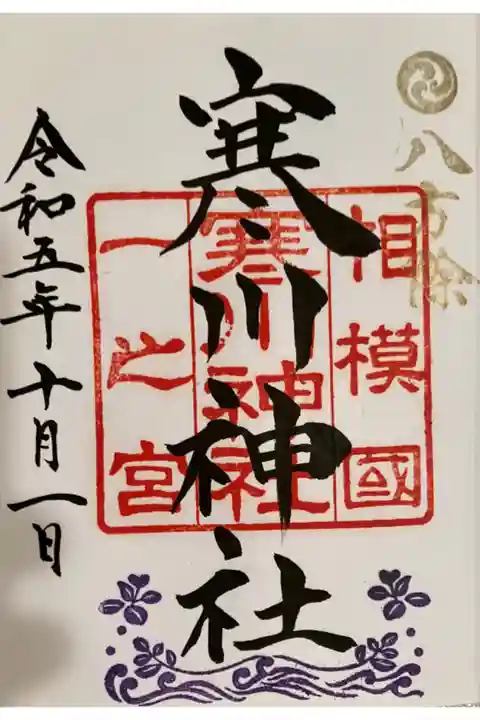 八方除
寒川神社
相模國
寒川神社
一之宮
令和五年十月一日